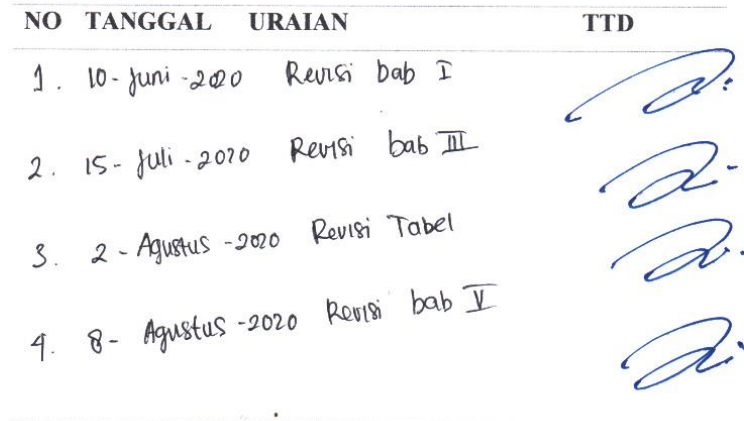 NO TANGGAL URAIAN TTD
1. 10-Juni-2020 Revisi bab I
2. 15-Juli-2020 Revisi bab III
3. 2-Agustus-2020 Revisi Tabel
4. 8-Agustus-2020 Revisi bab V